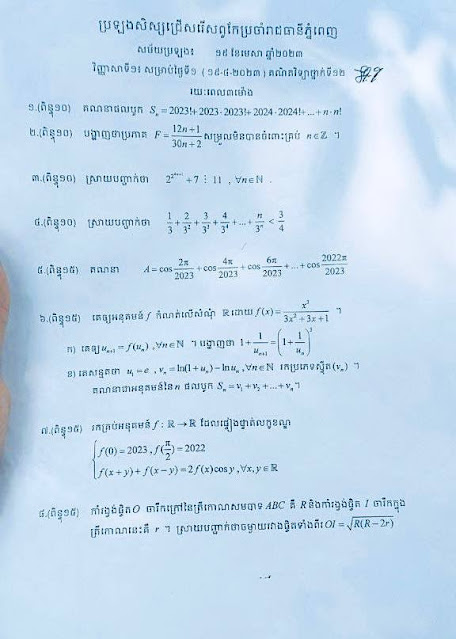 ប្រឡងសិស្សជ្រើសរើសពូកែប្រចាំរាជធានីភ្នំពេញ
សម័យប្រឡង៖ ១៥ ខែមេសា ឆ្នាំ២០២៣
វិញ្ញាសាទី១៖ សម្រាប់ថ្ងៃទី១ ( ១៩-៤-២០២៣ ) គណិតវិទ្យាថ្នាក់ទី១២
រយៈពេល៣ម៉ោង
១.(ពិន្ទុ១០) គណនាផលបូក S_n = 2023!+2023·2023!+2024·2024!+...+n·n!
២.(ពិន្ទុ១០) បង្ហាញថាប្រភាគ F = (12n+1)/(30n+2) សម្រួលមិនបានចំពោះគ្រប់ n∈ℤ ។
៣.(ពិន្ទុ១០) ស្រាយបញ្ជាក់ថា 2^(2^(4n+1)) + 7 ⋮ 11 , ∀n∈ℕ .
៤.(ពិន្ទុ១០) ស្រាយបញ្ជាក់ថា 1/3 + 2/3² + 3/3³ + 4/3⁴ + ... + n/3ⁿ < 3/4
៥.(ពិន្ទុ១៥) គណនា A = cos 2π/2023 + cos 4π/2023 + cos 6π/2023 + ... + cos 2022π/2023
៦.(ពិន្ទុ១៥) គេឲ្យអនុគមន៍ f កំណត់លើសំណុំ ℝ ដោយ f(x) = x³/(3x²+3x+1) ។
ក) គេឲ្យ u_(n+1) = f(u_n) ,∀n∈ℕ ។ បង្ហាញថា 1 + 1/u_(n+1) = (1 + 1/u_n)³
ខ) គេសន្មតថា u₁ = e , v_n = ln(1+u_n) − ln u_n ,∀n∈ℕ រកប្រភេទស្វ៊ីត(v_n) ។
គណនាជាអនុគមន៍នៃ n ផលបូក S_n = v₁ + v₂ + ... + v_n ។
៧.(ពិន្ទុ១៥) រកគ្រប់អនុគមន៍ f : ℝ → ℝ ដែលផ្ទៀងផ្ទាត់លក្ខខណ្ឌ
{ f(0) = 2023 , f(π/2) = 2022
f(x+y) + f(x−y) = 2f(x)cos y ,∀x,y∈ℝ
៨.(ពិន្ទុ១៥) កាំរង្វង់ផ្ចិត O ចារឹកក្រៅនៃត្រីកោណសមបាទ ABC គឺ R និងកាំរង្វង់ផ្ចិត I ចារឹកក្នុង
ត្រីកោណនេះគឺ r ។ ស្រាយបញ្ជាក់ថាចម្ងាយរវាងផ្ចិតទាំងពីរ OI = √(R(R−2r))